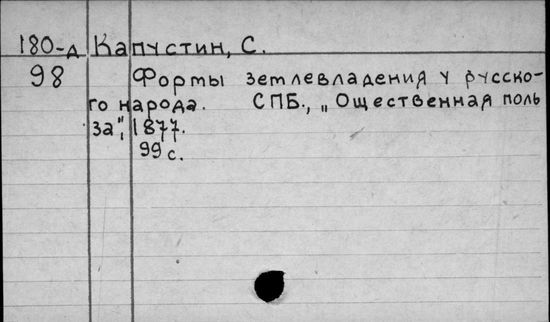 180-д Капустин, С.
98 Формы землевладения у русско-
го народа. СПБ., „Ощественная поль
за", 1877.
99 с.